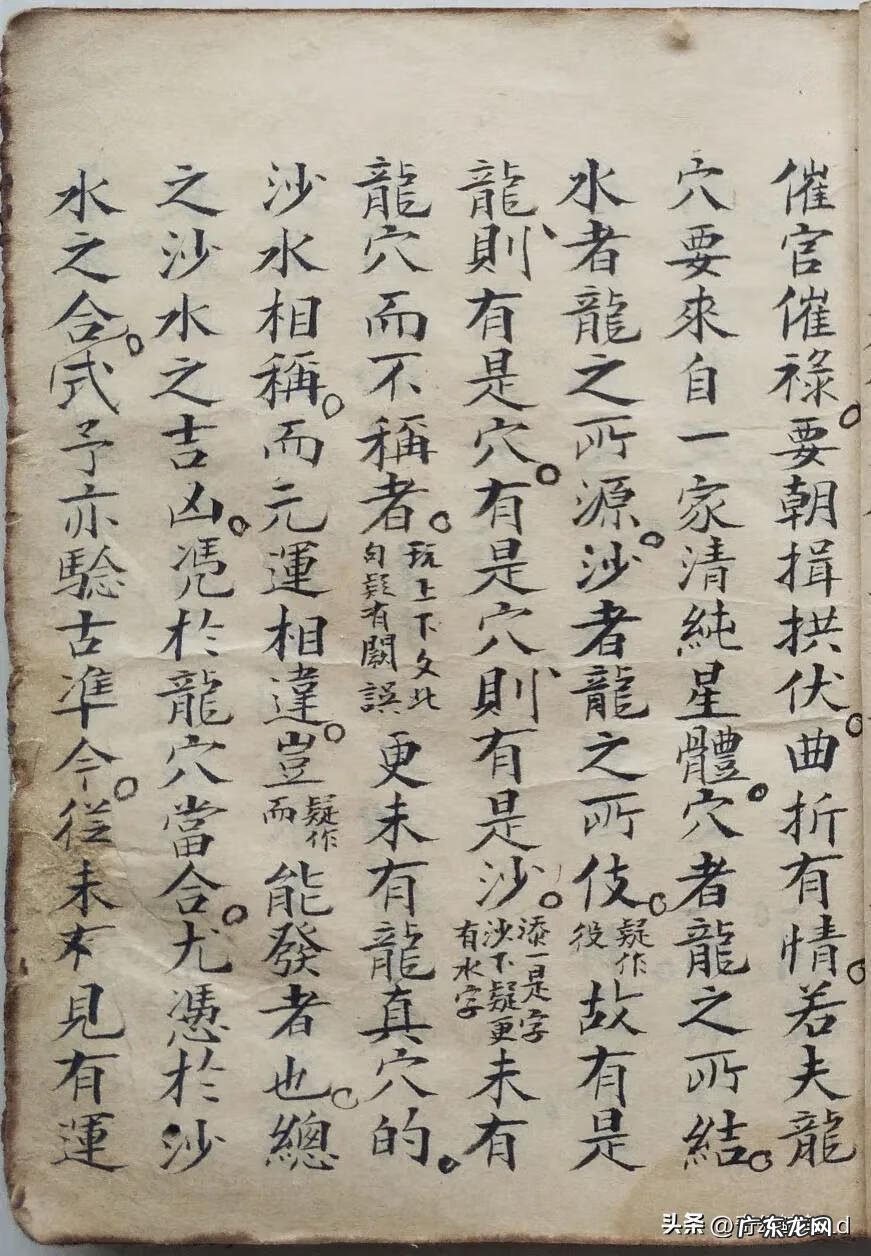 催官催祿。要朝揖拱伏。曲折有情。若夫龍
穴要來自一家清純星體。穴者龍之所結。
水者龍之所源。沙者龍之所伎。疑作役故有是
龍則有是穴。有是穴則有是沙。添一是字沙下疑更有水字未有
龍穴而不稱者。玩上下文此句疑有闕誤更未有龍真穴的。
沙水相稱。而元運相違。豈疑作而能發者也。總
之沙水之吉凶。凴於龍穴當合。尤憑於沙
水之合。式予亦驗古準今。從未不見有運
头条 @广东龙网